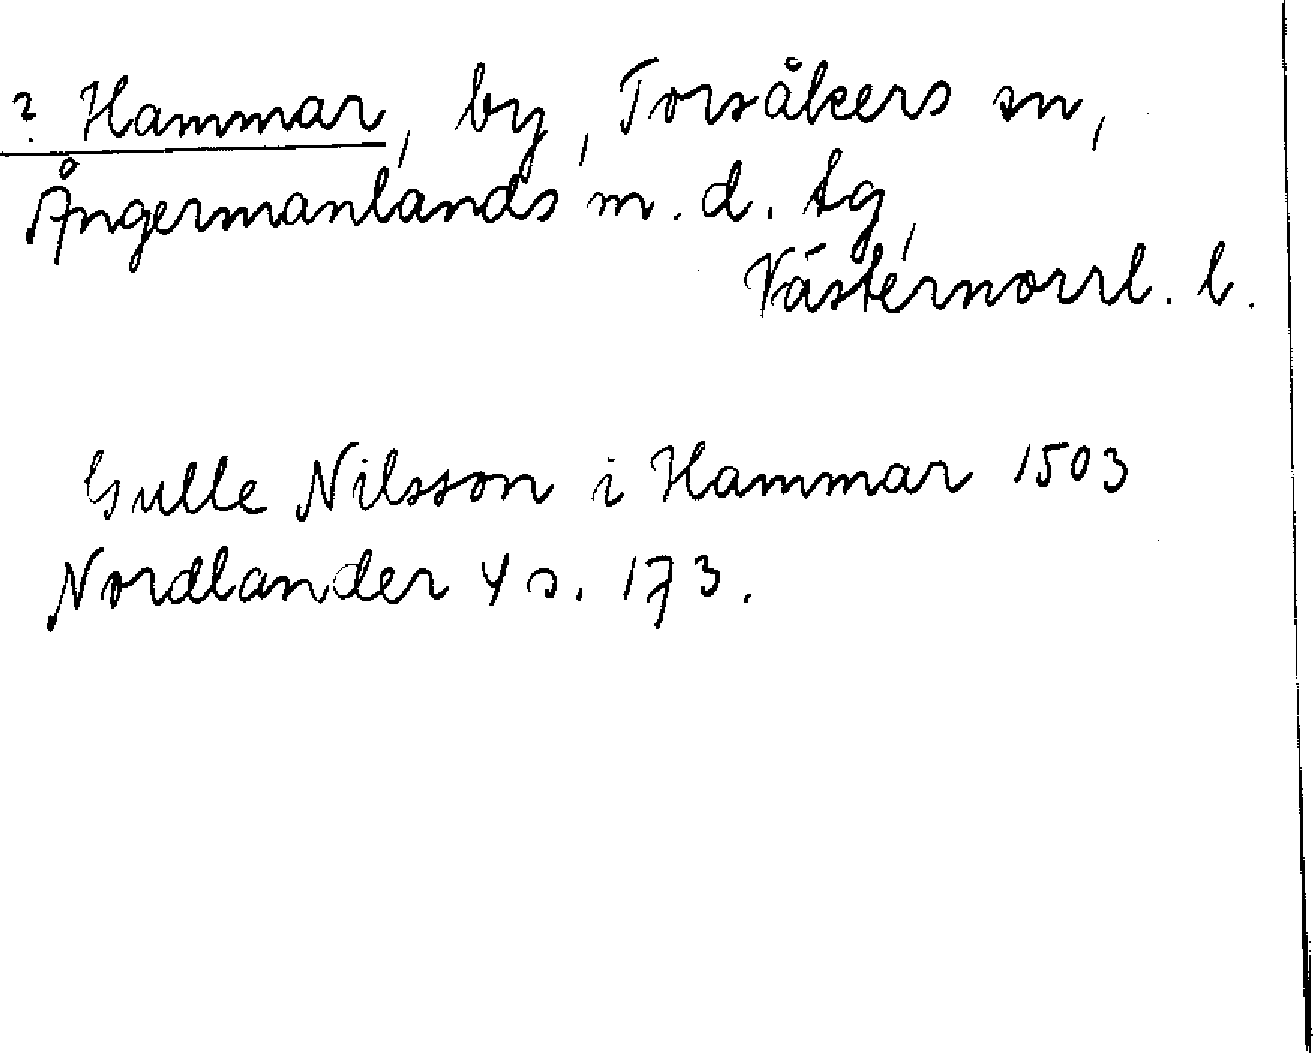 ? Hammar, by, Torsåkers sn,
Ångermanlands m. d. tg,
Västernorrl. l.
Gulle Nilsson i Hammar 1503
Nordlander 4 s. 173.